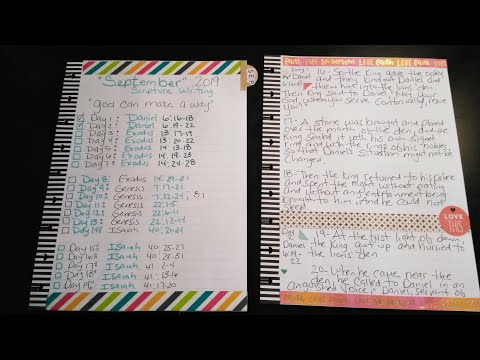 "September" 2019
Scripture Writing
SEP
"god can make a way"
Day 1: Daniel 6:16-18
Day 2: Daniel 6:19-22
Day 3: Exodus 13:17-19
Day 4: Exodus 13:20-22
Day 5: Exodus 14:13-18
Day 6: Exodus 14:19-23
Day 7: Exodus 14:24-28
Day 8: Exodus 14:29-31
Day 9: Genesis 7:17-21
Day 10: Genesis 7:22-24, 8:1
Day 11: Genesis 22:1-5
Day 12: Genesis 22:6-11
Day 13: Genesis 22:12-14
Day 14: Isaiah 40:21-24
Day 15: Isaiah 40:25-27
Day 16: Isaiah 40:28-31
Day 17: Isaiah 41:
Day 18: Isaiah 41:
Day 19: Isaiah 41:17-20
faith LOVE faith LOVE faith
Day 1
Daniel
16- So the King gave the order
and they brought Daniel and
threw him into the lions den
The King said to Daniel "May your
God, whom you serve Continually, rescue
17- A stone was brought and placed
over the mouth of the den, and the
King Sealed it with his own signet
ring and with the rings of his nobles,
so that Daniels Situation might not be
Changed.
18- Then the king returned to his palace
and Spent the night without eating
and without any entertainment being
brought to him. And he could not
Sleep
LOVE
THIS
Day
Daniel
6:19-
22
19- At the first light of dawn,
the king got up and hurried to
the lions den
20- When he came near the
den, he called to Daniel in an
anguished voice, "Daniel, servant of